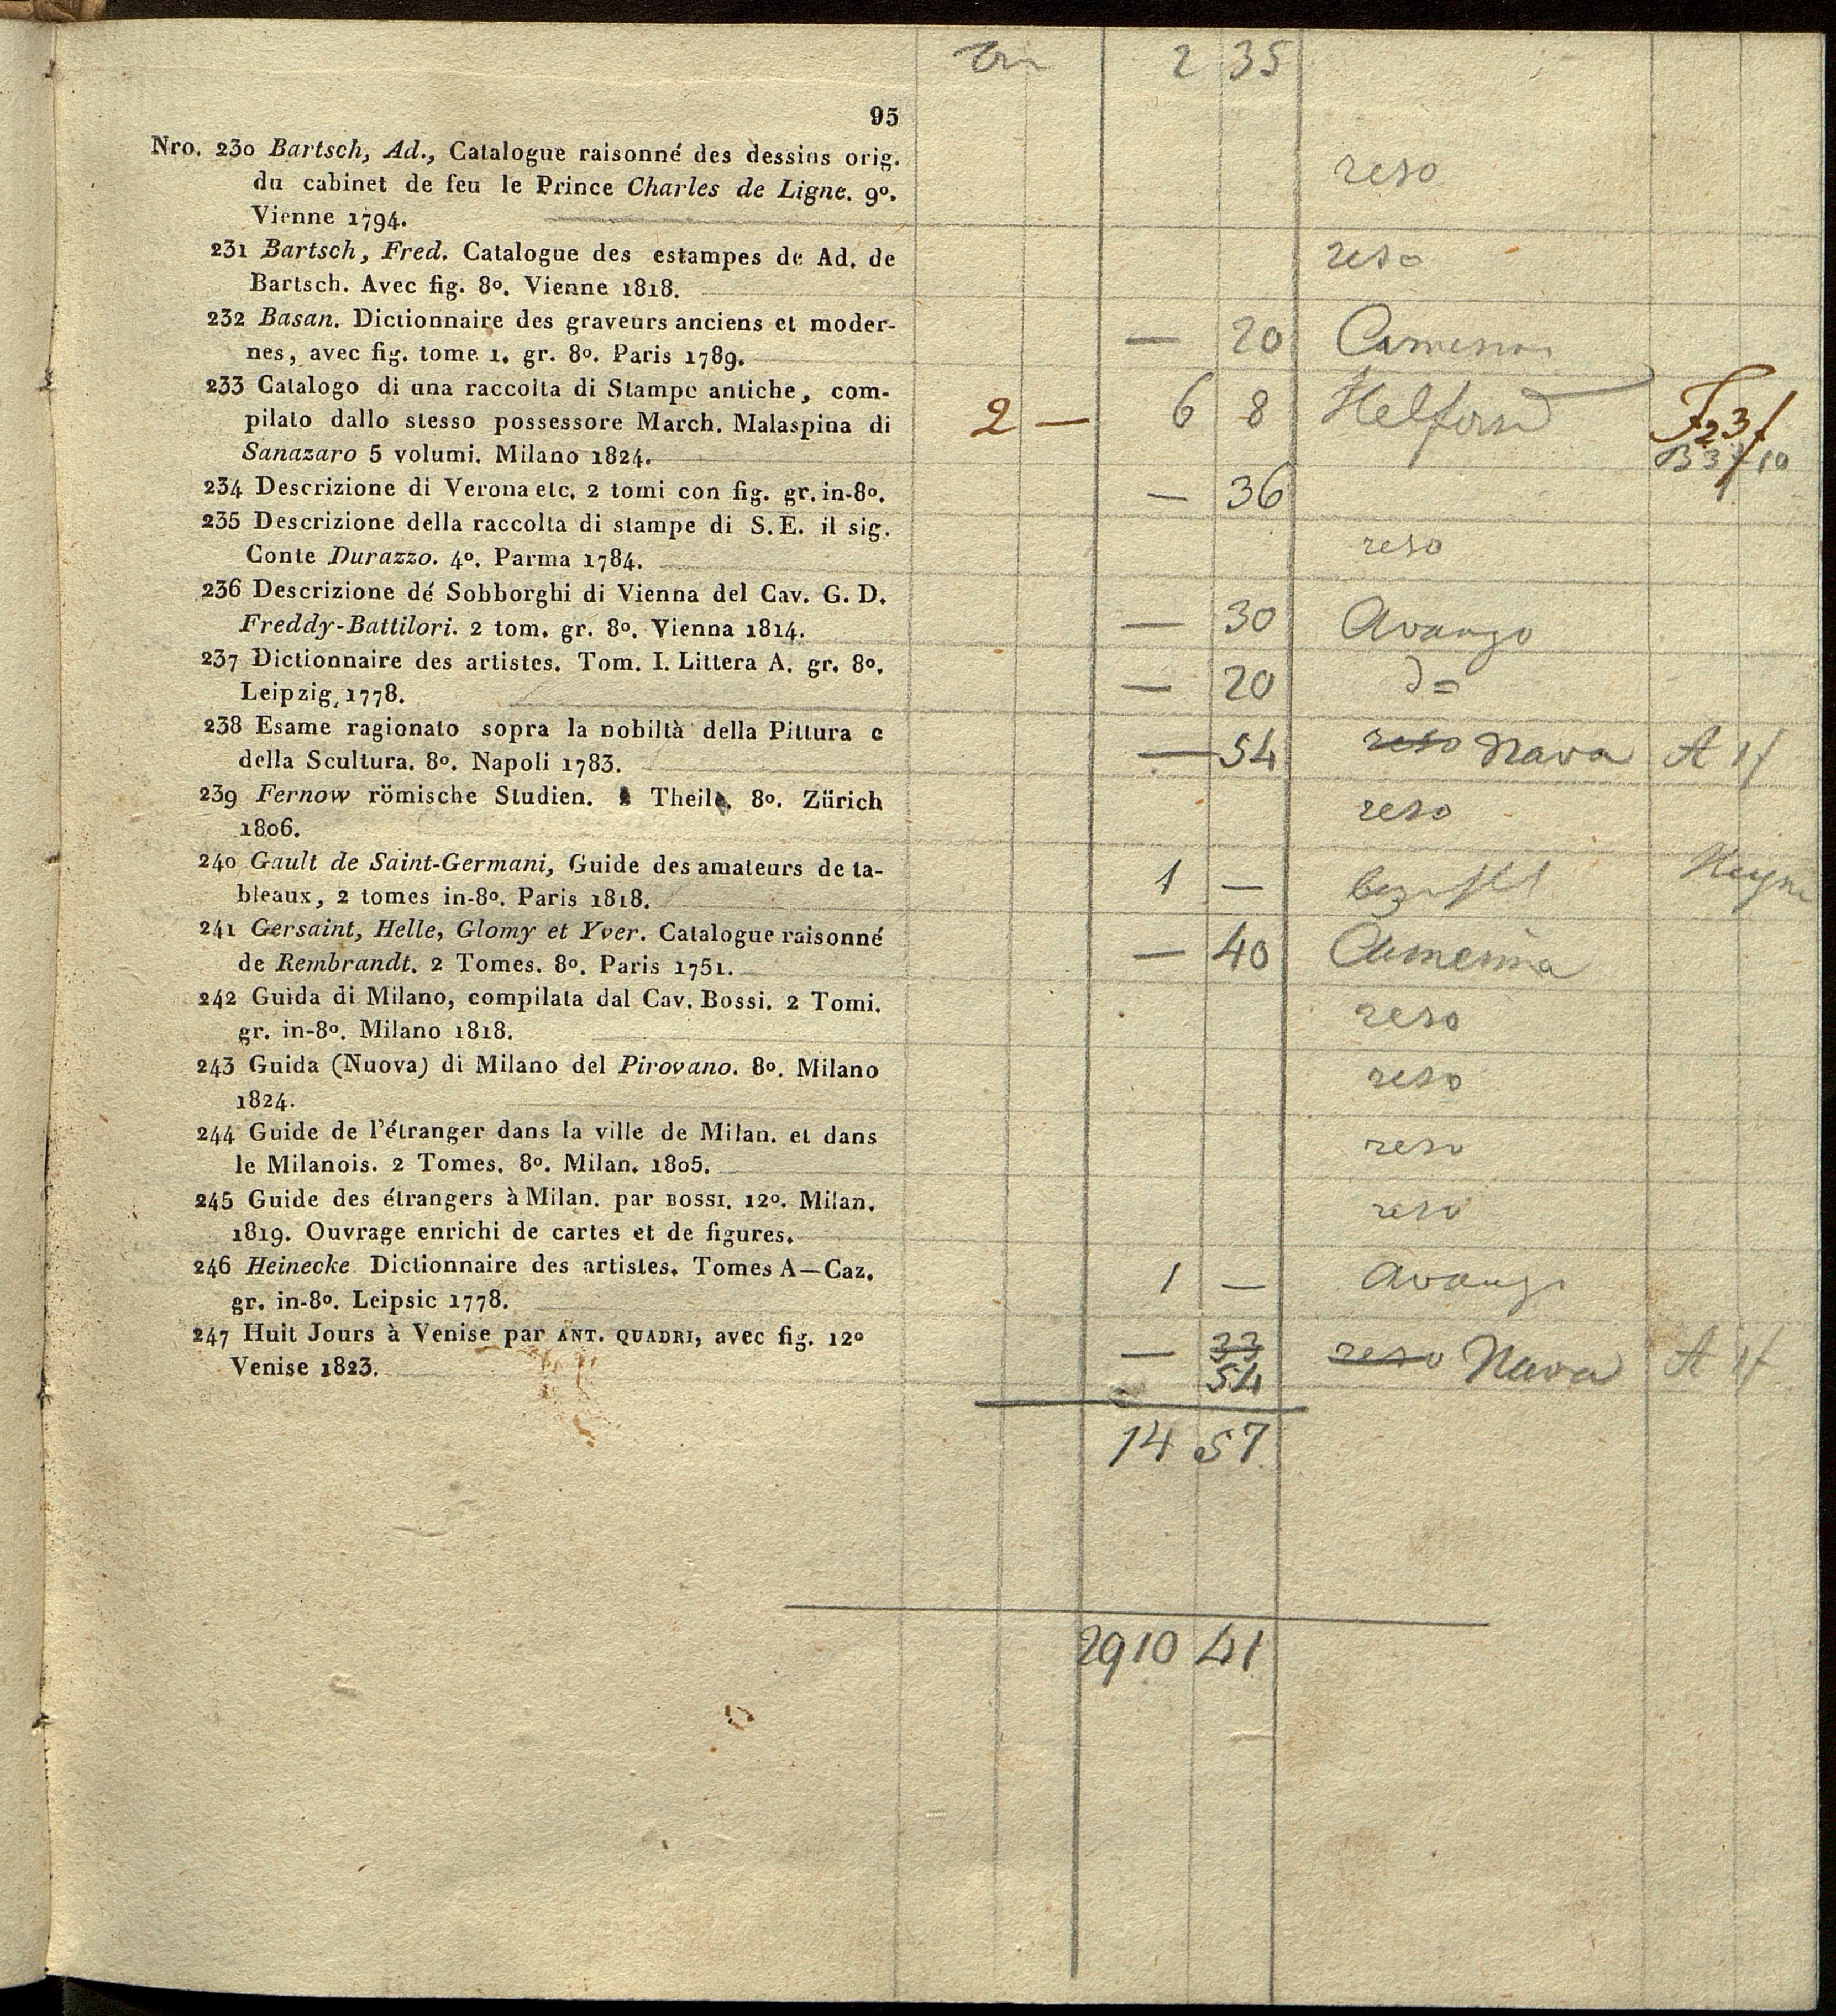 2 35
95
Nro. 230 Bartsch, Ad., Catalogue raisonné des dessins orig.
du cabinet de feu le Prince Charles de Ligne. 9º.
Vienne 1794.
reso
231 Bartsch, Fred. Catalogue des estampes de Ad. de
Bartsch. Avec fig. 8º. Vienne 1818.
reso
232 Basan. Dictionnaire des graveurs anciens et moder-
nes, avec fig. tome 1. gr. 8º. Paris 1789.
— 20
233 Catalogo di una raccolta di Stampe antiche, com-
pilato dallo stesso possessore March. Malaspina di
Sanazaro 5 volumi. Milano 1824.
2 — 6 8
234 Descrizione di Verona etc. 2 tomi con fig. gr. in-8º.
— 36
235 Descrizione della raccolta di stampe di S. E. il sig.
Conte Durazzo. 4º. Parma 1784.
reso
236 Descrizione dé Sobborghi di Vienna del Cav. G. D.
Freddy-Battilori. 2 tom. gr. 8º. Vienna 1814.
— 30 Avanzo
237 Dictionnaire des artistes. Tom. I. Littera A. gr. 8º.
Leipzig, 1778.
— 20
238 Esame ragionato sopra la nobiltà della Pittura e
della Scultura. 8º. Napoli 1783.
— 54 reso Nava A 1f
239 Fernow römische Studien. Theile. 8º. Zürich
1806.
reso
240 Gault de Saint-Germani, Guide des amateurs de ta-
bleaux, 2 tomes in-8º. Paris 1818.
1 —
241 Gersaint, Helle, Glomy et Yver. Catalogue raisonné
de Rembrandt. 2 Tomes. 8º. Paris 1751.
— 40
242 Guida di Milano, compilata dal Cav. Bossi. 2 Tomi.
gr. in-8º. Milano 1818.
reso
243 Guida (Nuova) di Milano del Pirovano. 8º. Milano
1824.
reso
244 Guide de l'étranger dans la ville de Milan. et dans
le Milanois. 2 Tomes. 8º. Milan. 1805.
reso
245 Guide des étrangers à Milan. par BOSSI. 12º. Milan.
1819. Ouvrage enrichi de cartes et de figures.
reso
246 Heinecke Dictionnaire des artistes. Tomes A—Caz.
gr. in-8º. Leipsic 1778.
1 — Avanzo
247 Huit Jours à Venise par ANT. QUADRI, avec fig. 12º
Venise 1823.
— 33 reso Nava A 1f
54
14 57
2910 41